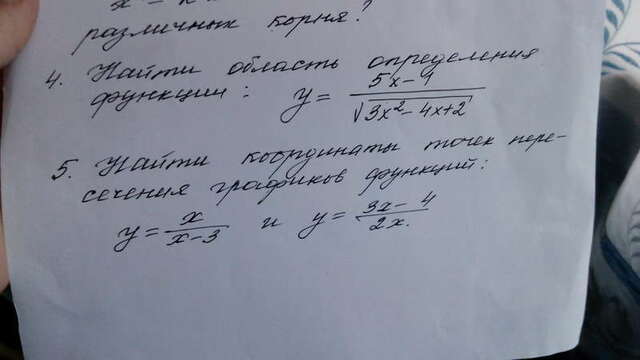 различных корня?
4. Найти область определения
функции: y = 5x-4 / √3x²-4x+2
5. Найти координаты точек пере-
сечения графиков функций:
y = x / x-3 и y = 3x-4 / 2x.